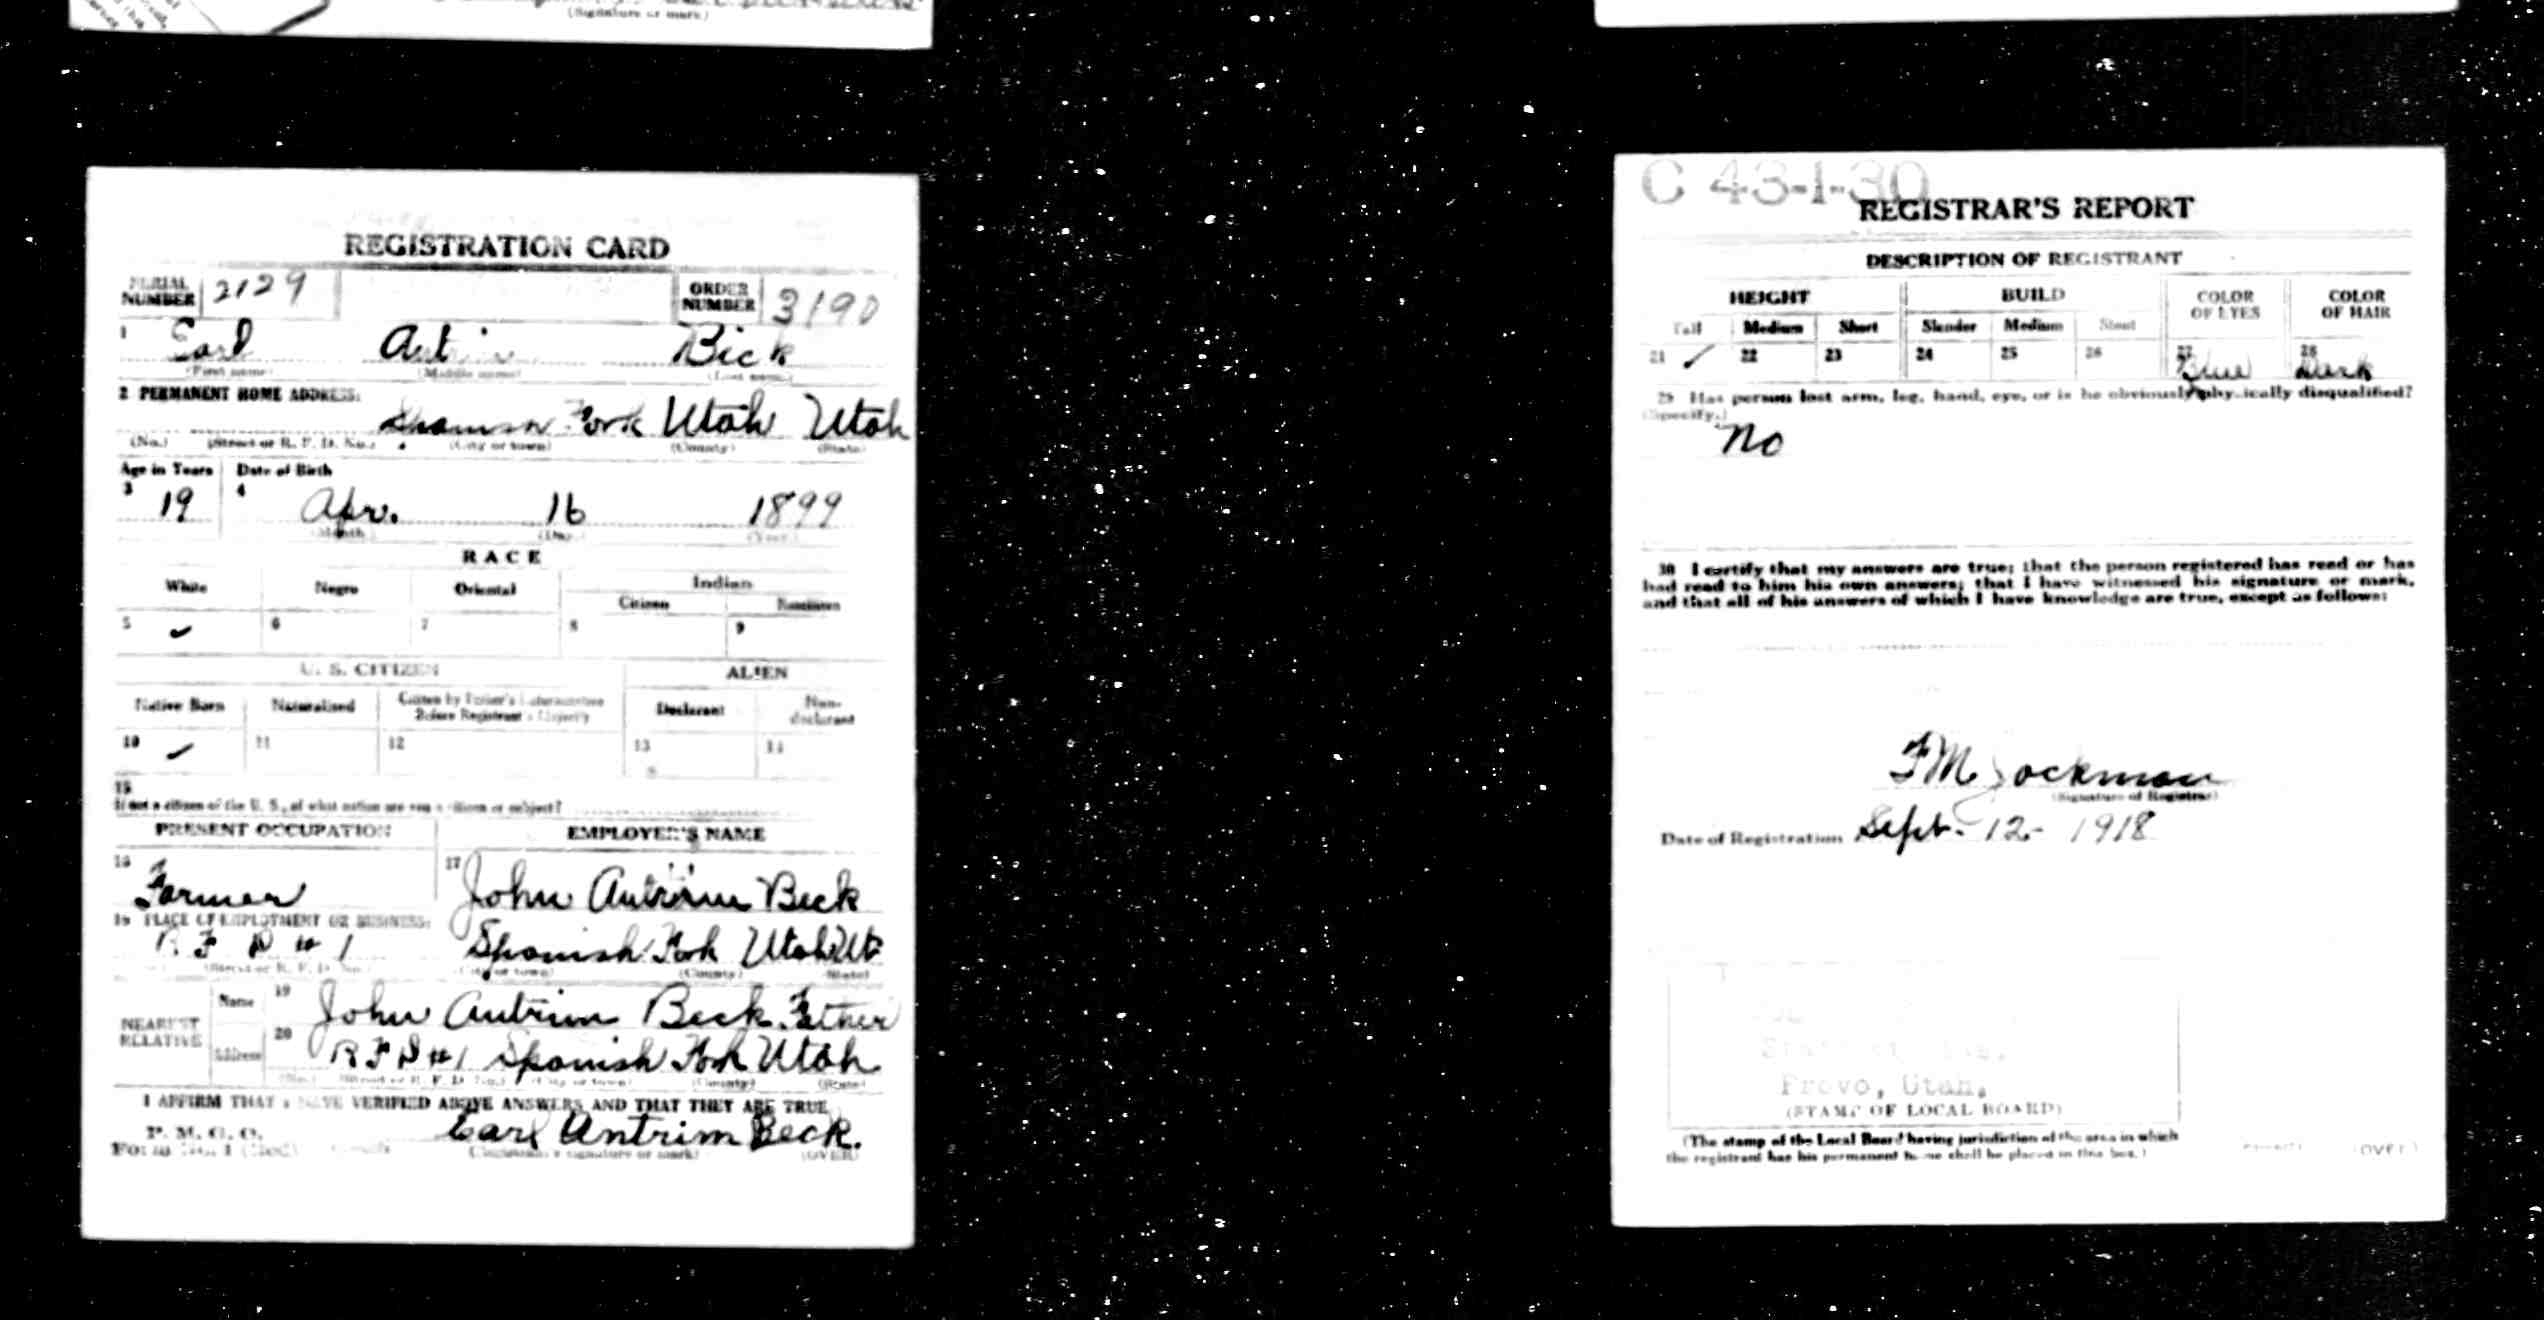 (Signature or mark)
REGISTRATION CARD
SERIAL NUMBER 2129 ORDER NUMBER 3190
1 Earl Beck
(First name) (Middle name) (Last name)
2 PERMANENT HOME ADDRESS:
Spanish Fork Utah Utah
(No.) (Street or R. F. D. No.) (City or town) (County) (State)
Age in Years Date of Birth
3 19 4 Apr. 16 1899
(Month) (Day) (Year)
RACE
White Negro Oriental Indian
Citizen Noncitizen
5 ✓ 6 7 8 9
U. S. CITIZEN ALIEN
Native Born Naturalized Citizen by Father's Naturalization Before Registrant's Majority Declarant Non-declarant
10 ✓ 11 12 13 14
15
If not a citizen of the U. S., of what nation are you a citizen or subject?
PRESENT OCCUPATION EMPLOYER'S NAME
16 Farmer 17 John Antrim Beck
18 PLACE OF EMPLOYMENT OR BUSINESS:
R F D # 1 Spanish Fork Utah Ut
(Street or R. F. D. No.) (City or town) (County) (State)
NEAREST RELATIVE
Name 19 John Antrim Beck. Father
Address 20 R F D #1 Spanish Fork Utah
(No.) (Street or R. F. D. No.) (City or town) (County) (State)
I AFFIRM THAT I HAVE VERIFIED ABOVE ANSWERS AND THAT THEY ARE TRUE
P. M. G. O.
Form No. 1 (Red) Earl Antrim Beck.
(Registrant's signature or mark) (OVER)
C 43-1-30
REGISTRAR'S REPORT
DESCRIPTION OF REGISTRANT
HEIGHT BUILD COLOR OF EYES COLOR OF HAIR
Tall Medium Short Slender Medium Stout
21 ✓ 22 23 24 25 26 27 Blue 28 Dark
29 Has person lost arm, leg, hand, eye, or is he obviously physically disqualified?
(Specify.)
No
30 I certify that my answers are true; that the person registered has read or has
had read to him his own answers; that I have witnessed his signature or mark,
and that all of his answers of which I have knowledge are true, except as follows:
F M
(Signature of Registrar)
Date of Registration Sept. 12 - 1918
Provo, Utah,
(STAMP OF LOCAL BOARD)
(The stamp of the Local Board having jurisdiction of the area in which
the registrant has his permanent home shall be placed in this box.)
(OVER)